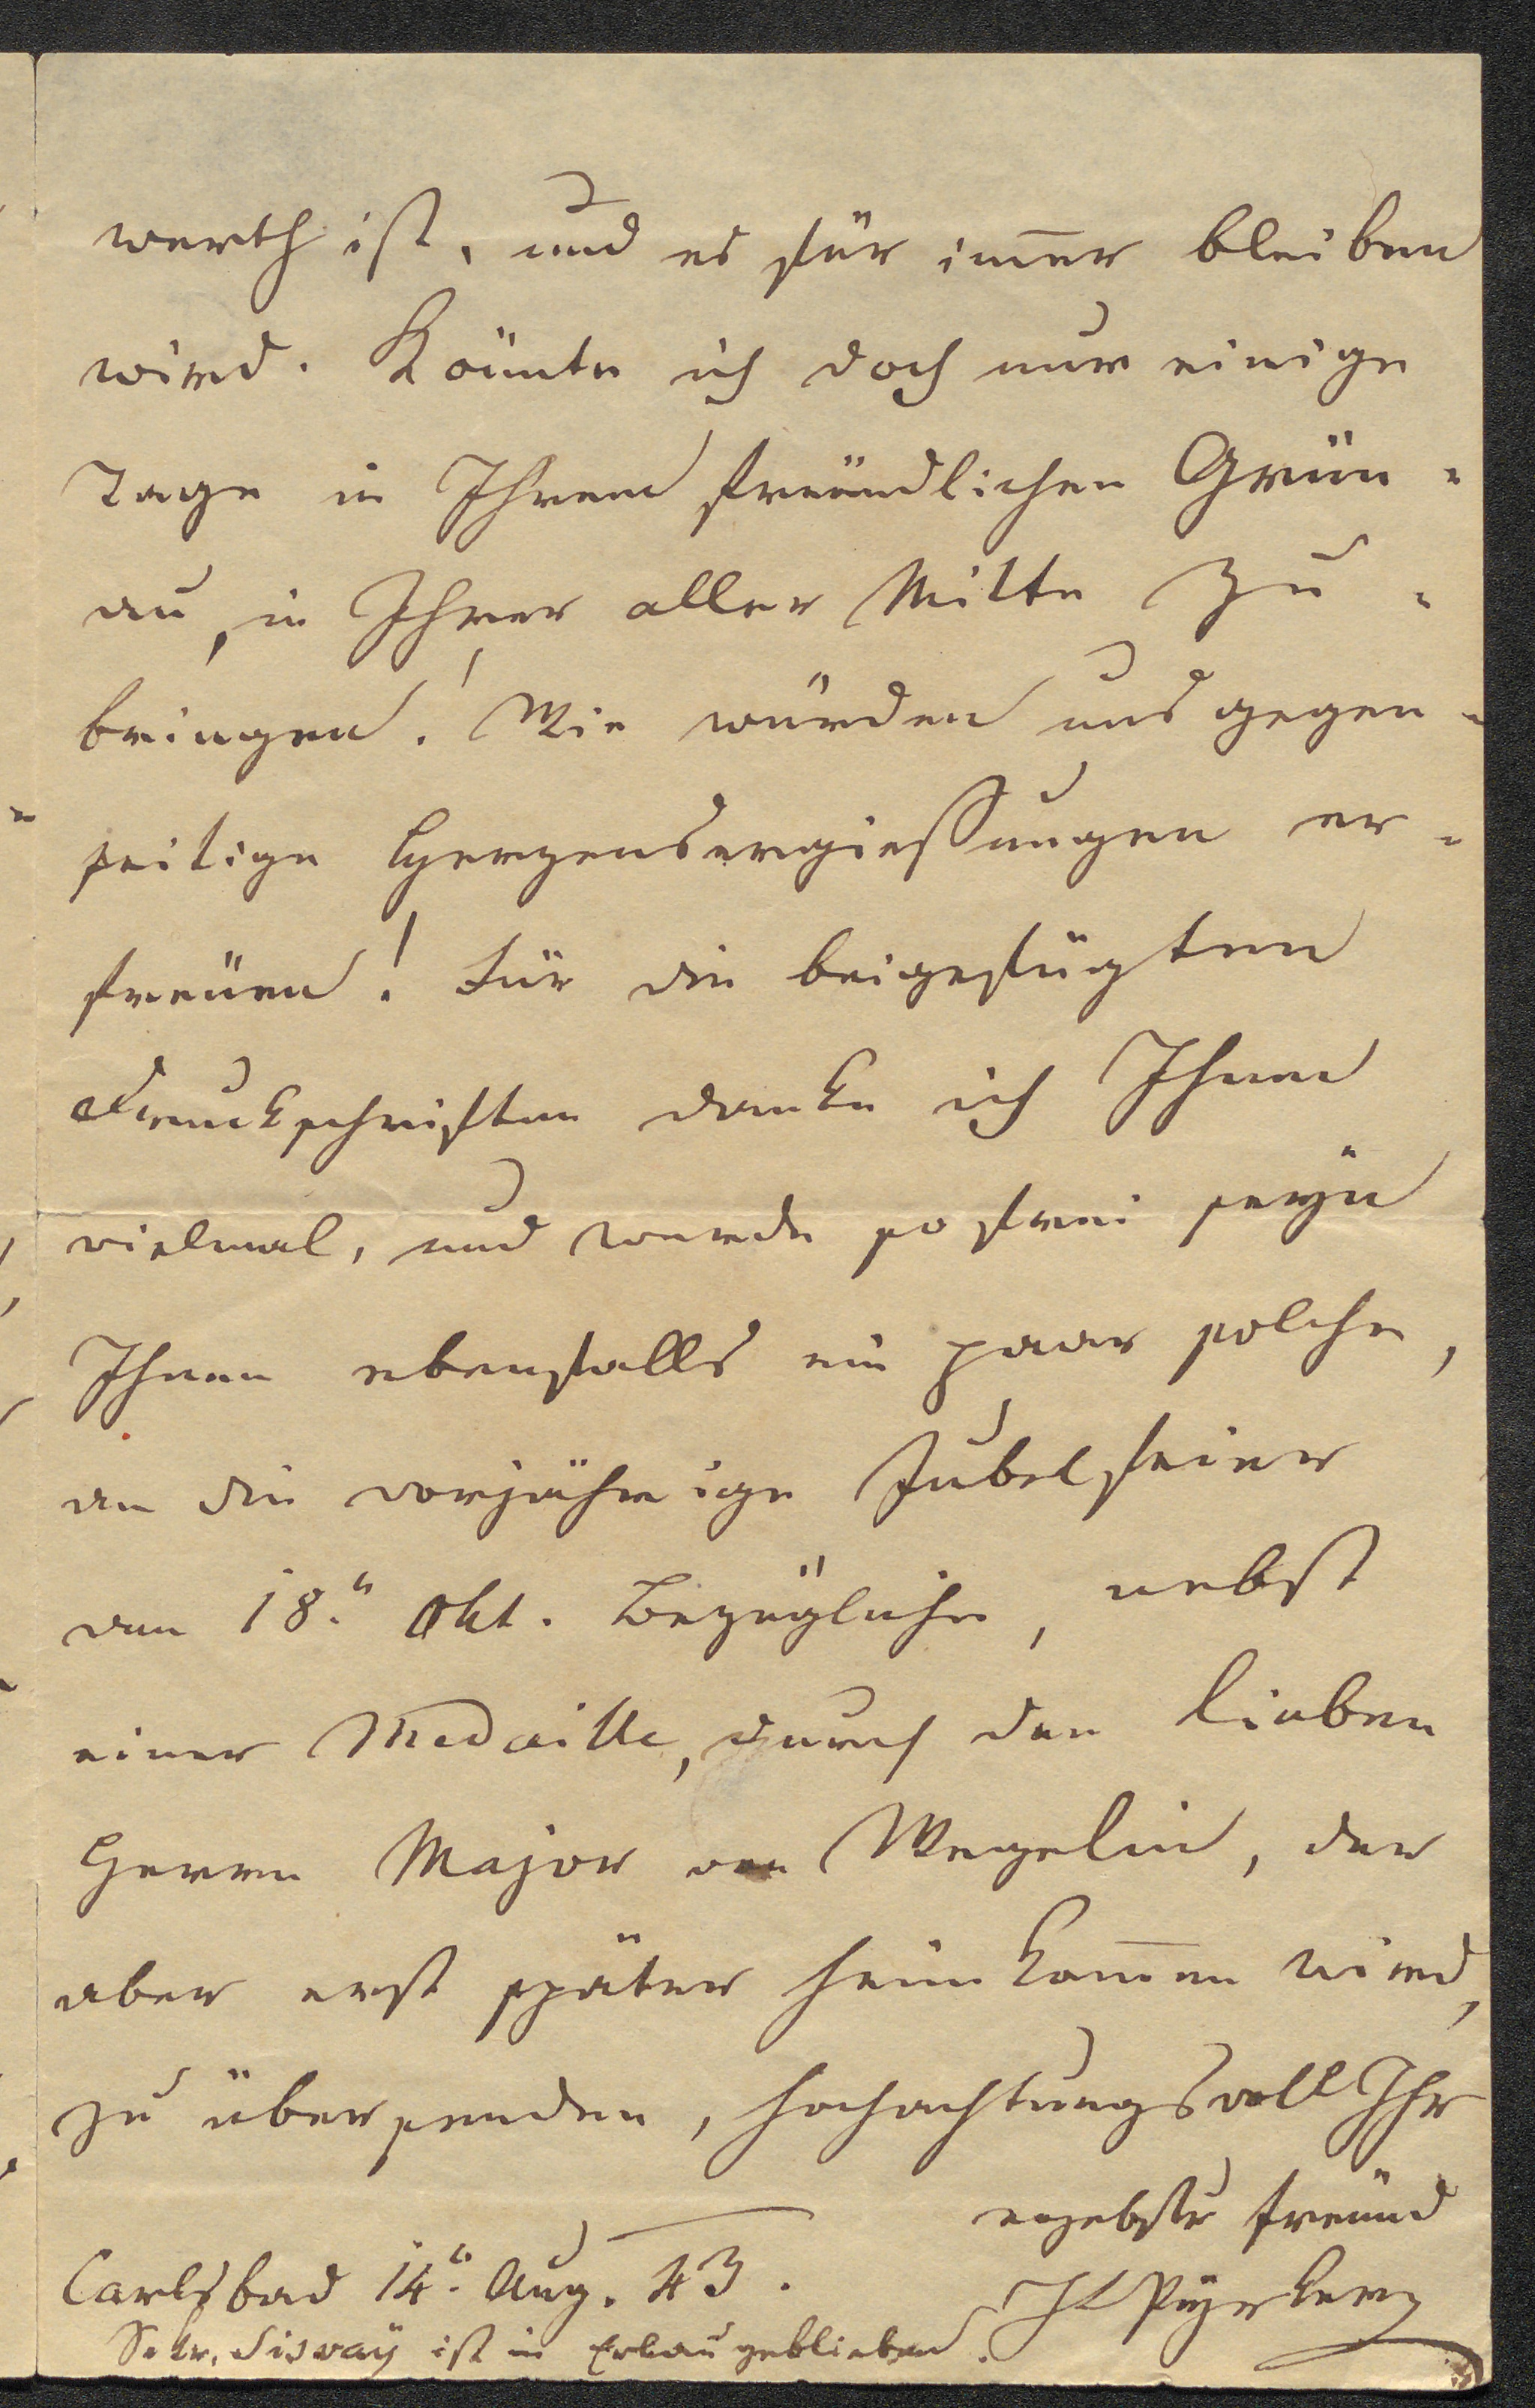 werth ist, und es für im̅er bleiben
wird. Könnte ich doch nur einige
Tage in Ihrem freündlichen Grün-
au, in Ihrer aller Mitte zu-
bringen! Wie würden uns gegen-
seitige Herzensergiessungen er-
freüen! Für die beigefügten
Druckschriften danke ich Ihnen
vielmal, und werde so frei seyn
Ihnen ebenfalls ein paar solche,
an die vorjährige Jubelfeier
vom 18.n Okt. Bezügliche, nebst
einer Medaille, durch den lieben
Herrn Major von Wegelin, der
aber erst später heim kom̅en wird,
zu übersenden, hochachtungsvoll Ihr
ergebster Freünd
Carlsbad 14.n Aug. 43.
JL Pyrker
Sekr. ist in Erlau geblieben.